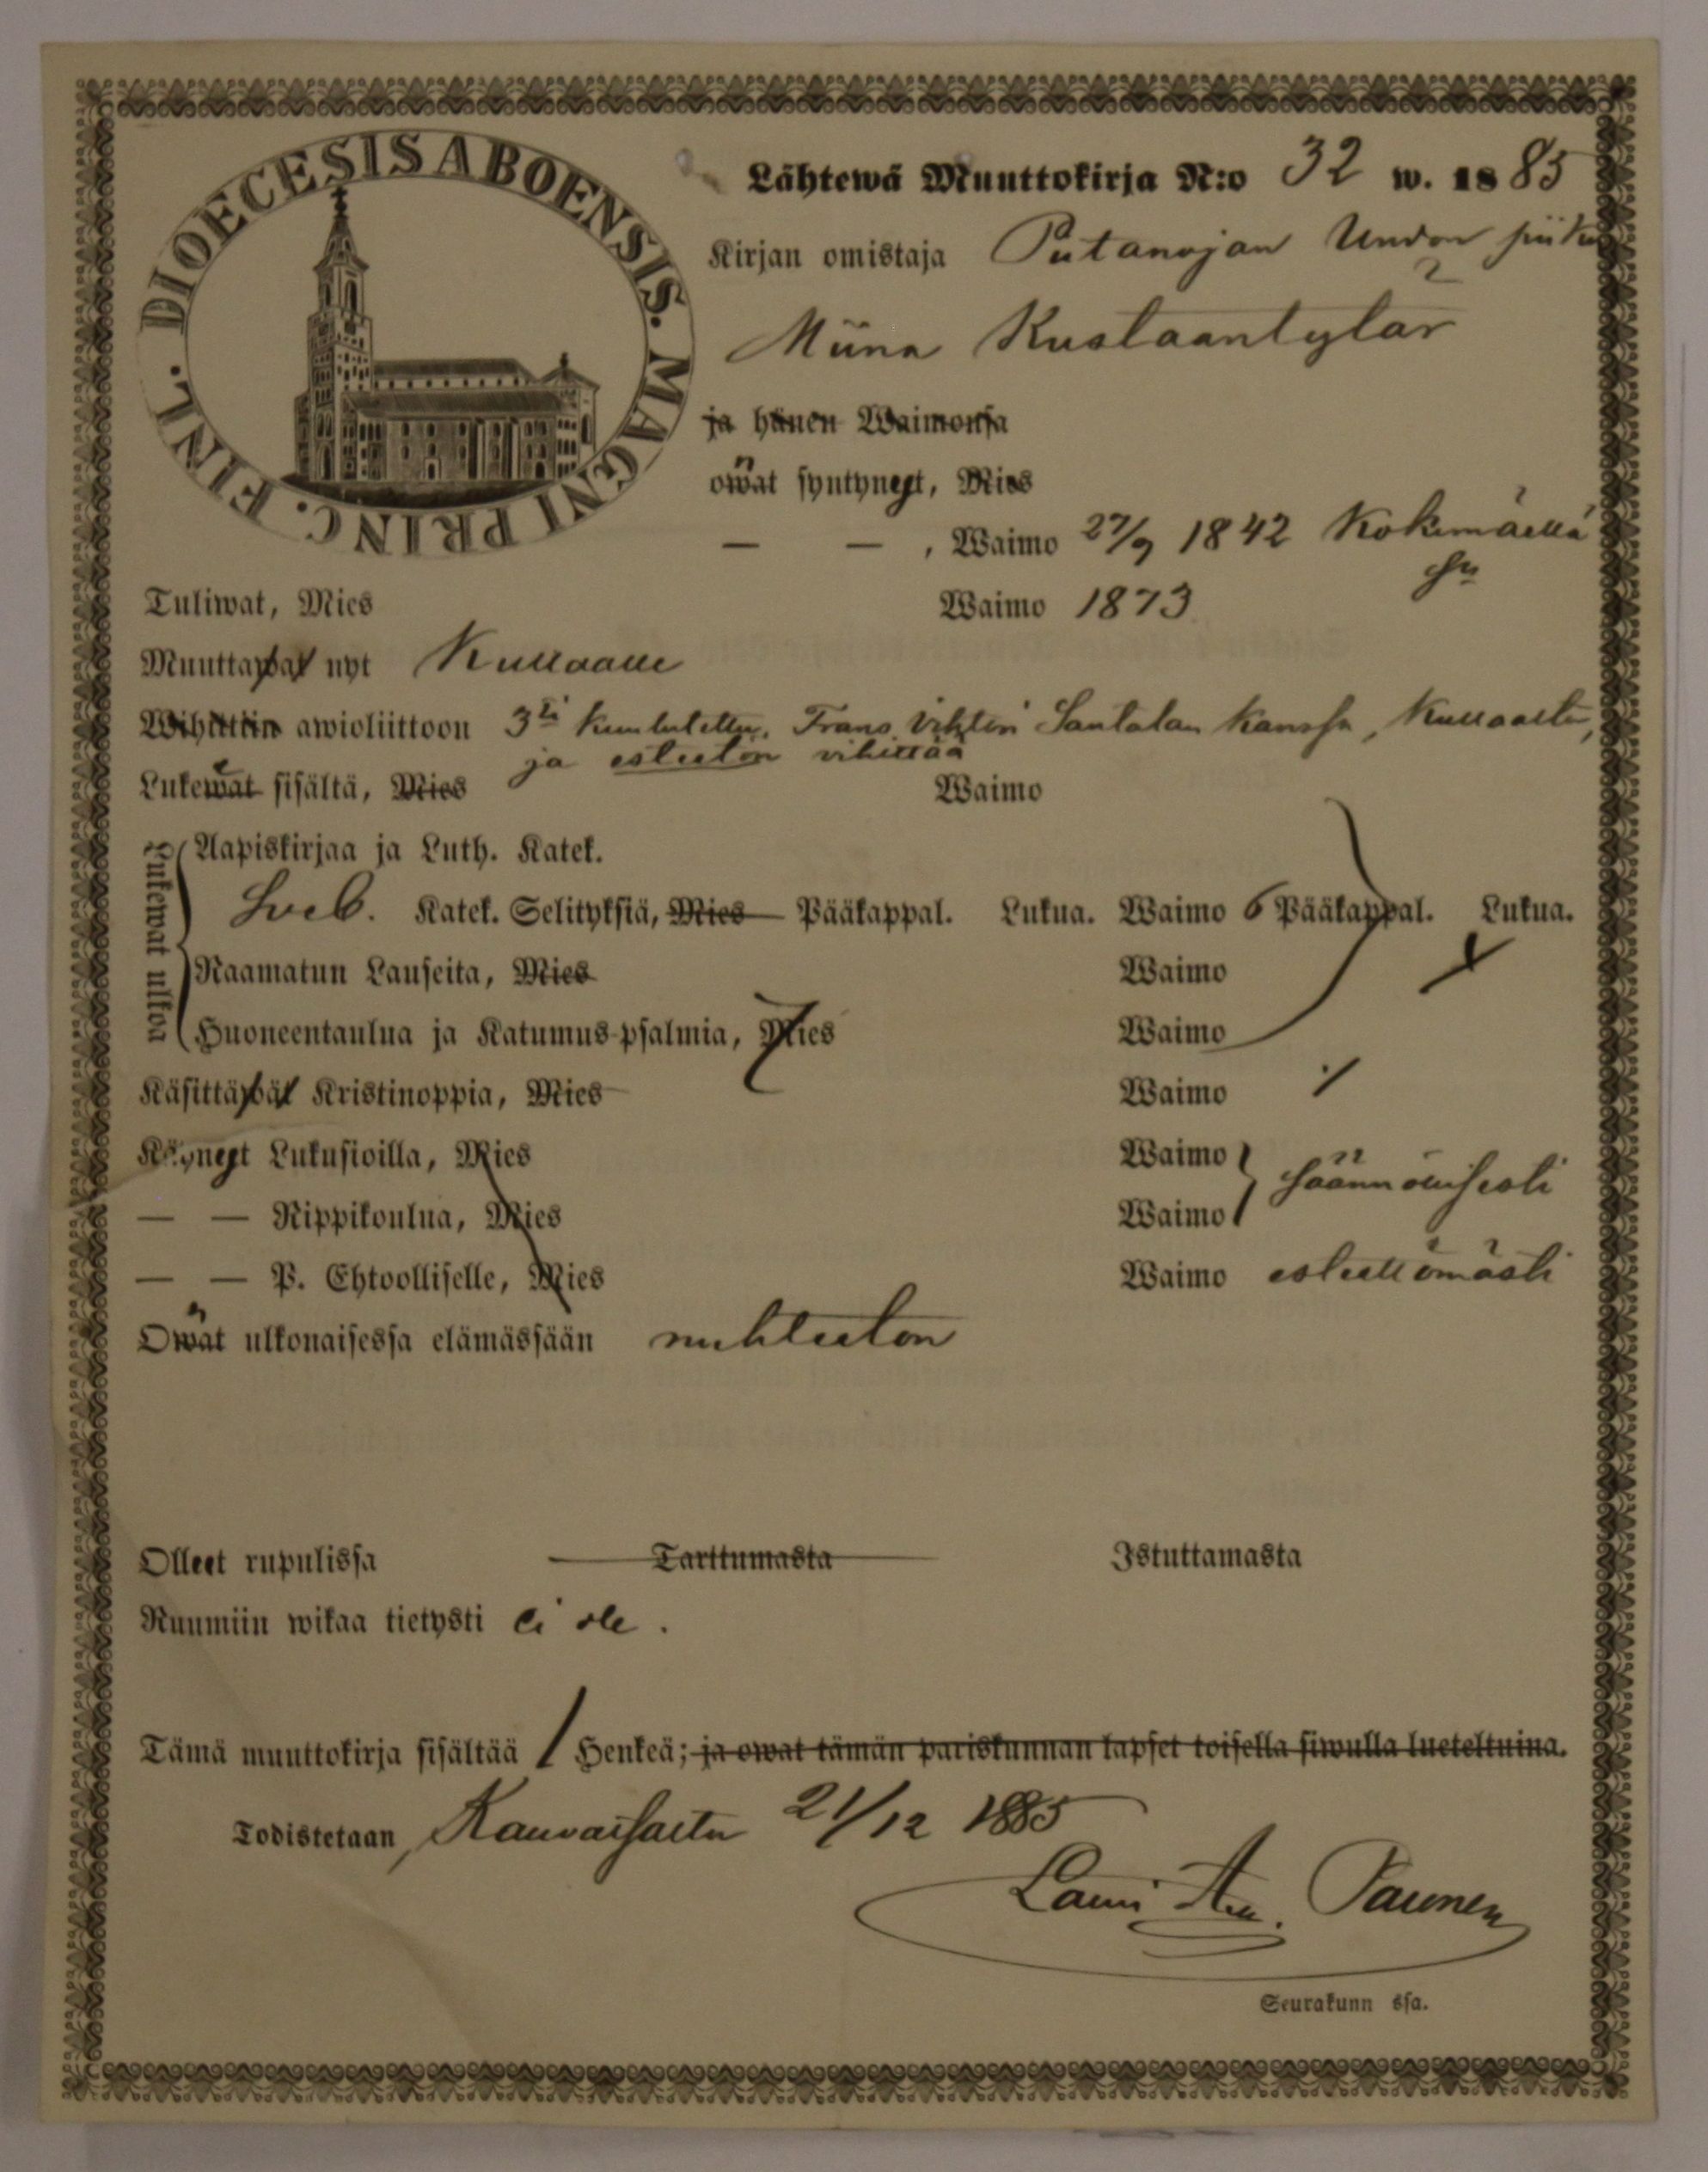 DIOECESIS ABOENSIS. MAGNI PRINC. FINL.
Lähtewä Muuttokirja N:o 32 w. 1885
Kirjan omistaja Putanojan Undon piika
Miina Kustaantytär
ja hänen Waimonsa
owat syntynyt, Mies
— — , Waimo 27/9 1842 Kokemäellä
Tuliwat, Mies Waimo 1873
Muuttawat nyt Kullaalle
Wihittiin awioliittoon 3sti kuulutettu Frans Vihtori Santalan kanssa, Kullaalta,
ja esteetön vihittää
Lukewat sisältä, Mies Waimo
Lukewat ulkoa
Aapiskirjaa ja Luth. Katek.
Sveb. Katek. Selityksiä, Mies Pääkappal. Lukua. Waimo 6 Pääkappal. Lukua.
Raamatun Lauseita, Mies Waimo
Huoneentaulua ja Katumus-psalmia, Mies Waimo
Käsittäwät Kristinoppia, Mies Waimo
Käynyt Lukusioilla, Mies Waimo säännöllisesti
— — Rippikoulua, Mies Waimo
— — P. Ehtoolliselle, Mies Waimo esteettömästi
Owat ulkonaisessa elämässään nuhteeton
Olleet rupulissa Tarttumasta Istuttamasta
Ruumiin wikaa tietysti ei ole.
Tämä muuttokirja sisältää 1 Henkeä; ja owat tämän pariskunnan lapset toisella siwulla lueteltuina.
Todistetaan, Kauvatsalta 21/12 1885
Lauri Au. Paunen
Seurakunn ssa.